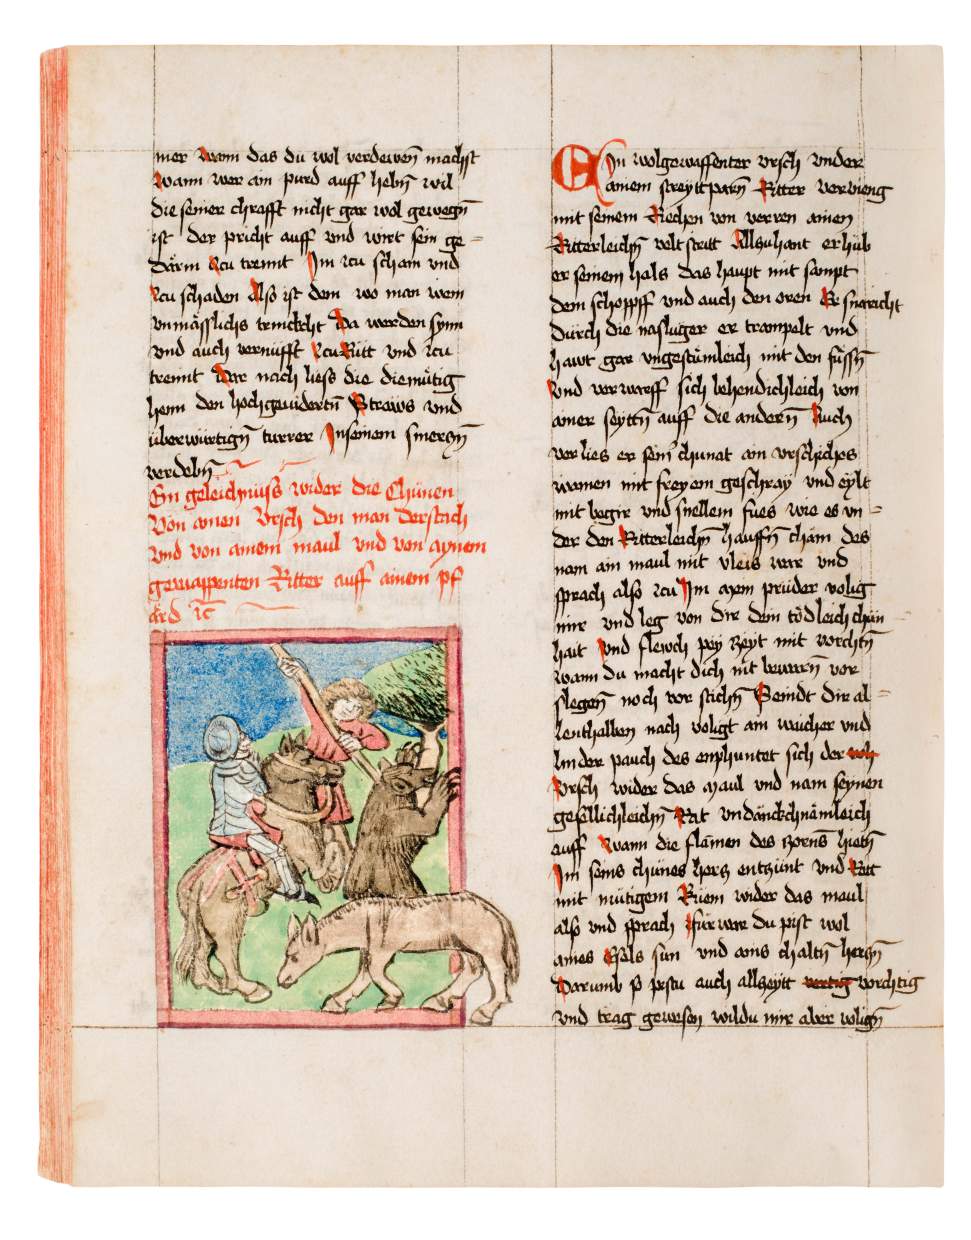 mer wann das du wol verdewen̄ machst
wann wer ain purd auff hebn̄ wil
die seiner chrafft nicht gar wol gewegn̄
ist der pricht auff vnd wirt sein ge=
därm zcu trennt Im zcu scham vnd
zcu schaden Also ist dem wo man wein
vnmässlichs trinckcht Da werden synn
vnd auch vernüfft zcu Rütt vnd zcu
trennt Dar nach liess die diemütig
henn den hochgeuidertn̄ Straws vnd
überwürtign̄ turrer In seinem smerczn̄
verdebn̄
Ein geleichnüss wider die Chünen
Von ainen Vrsch den man derstach
vnd von ainem maul vnd von aynem
gewappenten Ritter auff ainem pf
ärd zc̄
Ein wolgewaffenter vrsch vnder
ainem streyttparn̄ Ritter vervieng
mit seinem Rechen von verren ainen
Ritterleichn̄ veltstritt Allzuhant erhüb
er seinem hals das haupt mit sampt
dem schopff vnd auch den oren Er snaricht
durch die naslüger er trampelt vnd
hawt gar vngestümleich mit den füssn̄
Vnd verwarff sich behendichleich von
ainer seyttn̄ auff die andern̄ Auch
verlies er sein chunat ain vrschiches
wainen mit freyem geschray vnd eylt
mit begir vnd snellem fues wie es vn=
der den Ritterleichn̄ hauffn̄ chäm des
nam ain maul mit vleis war vnd
sprach also zcu Im ayem prüder volig
mir vnd leg von dir dein tödleich chün
hait Vnd flewch pey zeyt mit vorchtn̄
wann du macht dich nit bewarn̄ vor
slegen̄ noch vor stichn̄ Seindt dir al=
lenthalben nach voligt ain waicher vnd
linder pauch des enphuntet sich der
Vrsch wider das maul vnd nam seynen
gesellichleichn̄ Rat vndänckchnämleich
auff Wann die flämen des zorns hietn̄
Im seins chünes hercz entzünt vnd Rett
mit mütigem Rüem wider das maul
also vnd sprach fürwar du pist wol
aines Esels sun vnd ains chaltn̄ herczn̄
Darumb so pistu auch allzeytt vorchtig
vnd trag gewesen wildu mir aber volign̄